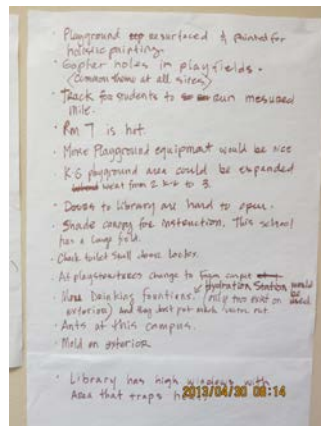 · Playground resurfaced & painted for
holistic painting.
· Gopher holes in playfields.
(Common theme at all sites)
· Track for students to run mesured
mile.
· Rm 7 is hot.
· More Playground equipment would be nice
· K-6 playground area could be expanded
went from 2 to 3.
· Doors to Library are hard to open.
· Shade canopy for instruction. This school
has a large field.
· Check toilet stall door locks.
· At playstructures change to
· More Drinking fountions. Hydration Station would
(only two exist on be
exterior) And they don't put much water out.
· Ants at this campus.
· Mold on exterior
· Library has high windows with
Area that traps
2013/04/30 08:14